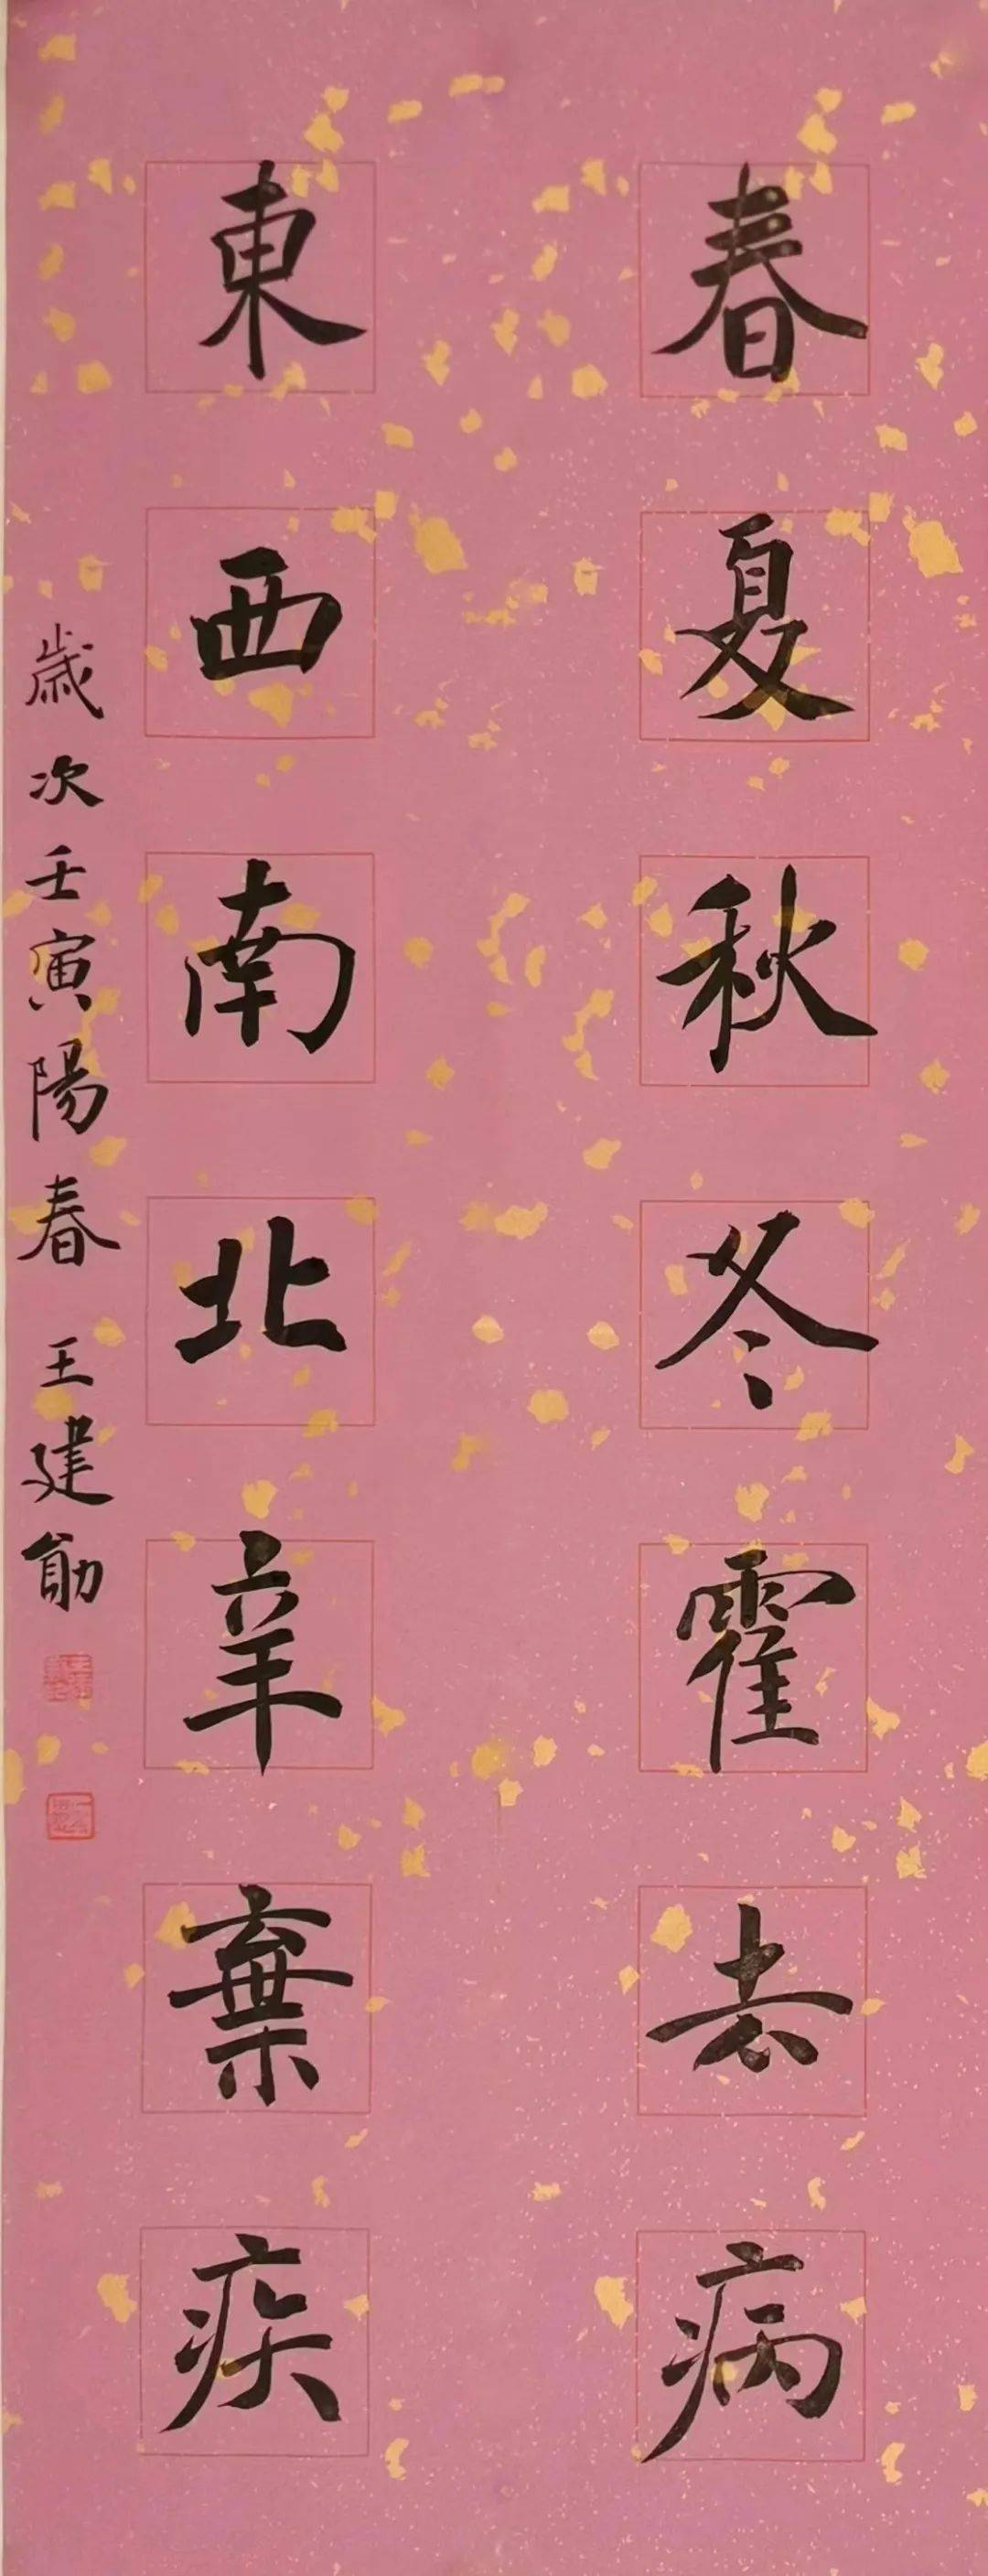 春夏秋冬霍去病
東西南北辛棄疾
歳次壬寅陽春 王建勛